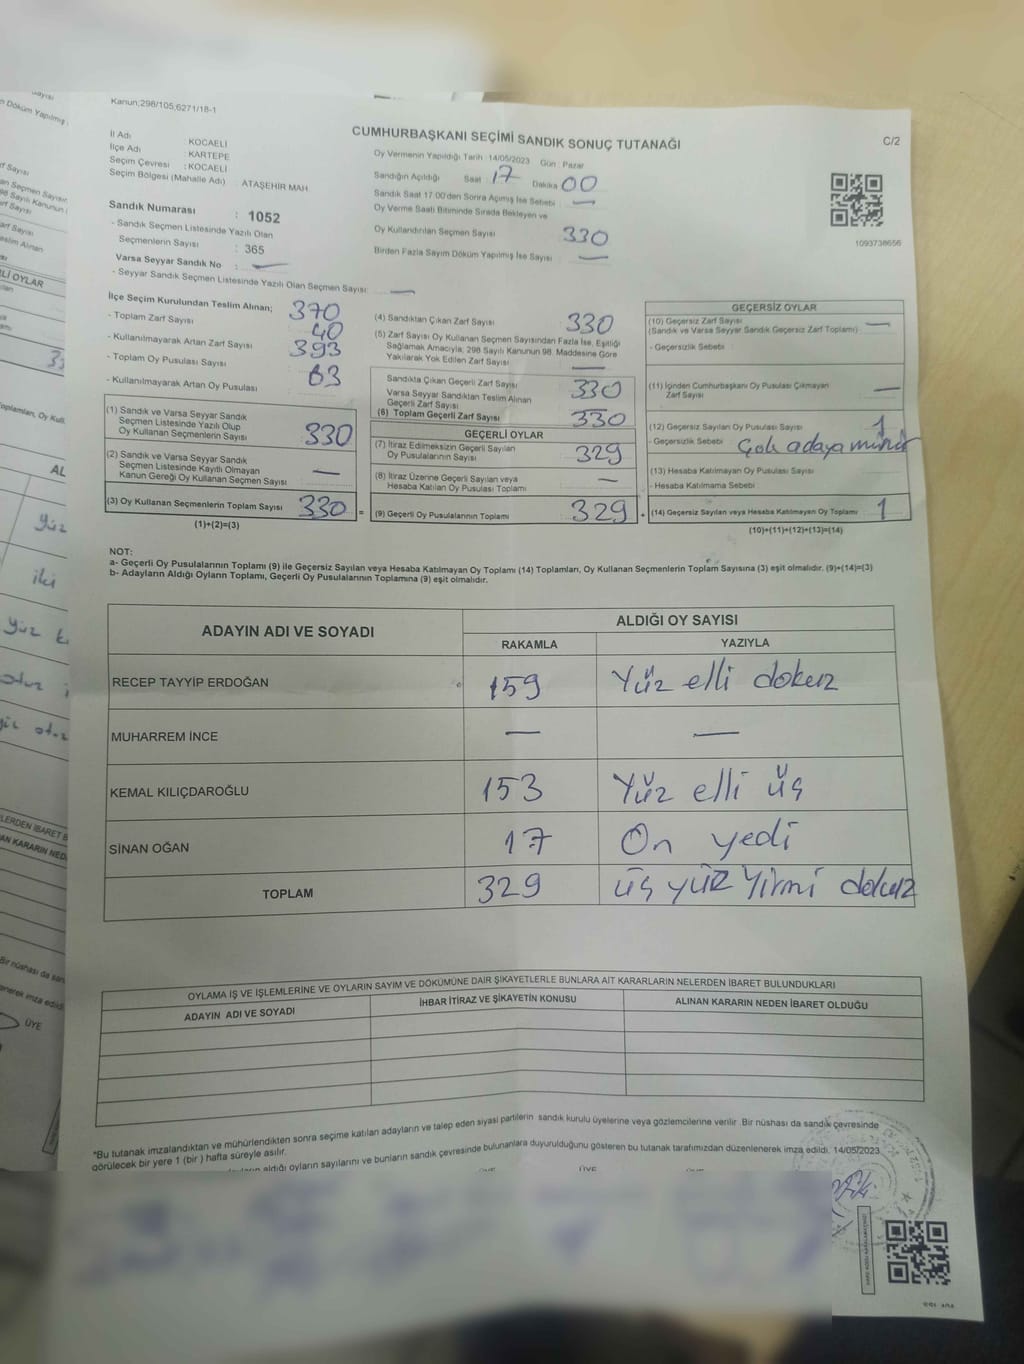 Kanun;298/105,6271/18-1
CUMHURBAŞKANI SEÇİMİ SANDIK SONUÇ TUTANAĞI
C/2
İl Adı : KOCAELİ
İlçe Adı : KARTEPE
Seçim Çevresi : KOCAELİ
Seçim Bölgesi (Mahalle Adı) ATAŞEHİR MAH
Sandık Numarası : 1052
- Sandık Seçmen Listesinde Yazılı Olan
Seçmenlerin Sayısı : 365
Varsa Seyyar Sandık No : —
- Seyyar Sandık Seçmen Listesinde Yazılı Olan Seçmen Sayısı: —
Oy Vermenin Yapıldığı Tarih :14/05/2023 Gün : Pazar
Sandığın Açıldığı Saat : 17 Dakika 00
Sandık Saat 17.00'den Sonra Açımış İse Sebebi : —
Oy Verme Saati Bitiminde Sırada Bekleyen ve
Oy Kullandırılan Seçmen Sayısı 330
Birden Fazla Sayım Döküm Yapılmış İse Sayısı : —
1093738656
İlçe Seçim Kurulundan Teslim Alınan;
- Toplam Zarf Sayısı 370
- Kullanılmayarak Artan Zarf Sayısı 40
- Toplam Oy Pusulası Sayısı 393
- Kullanılmayarak Artan Oy Pusulası 63
(1) Sandık ve Varsa Seyyar Sandık
Seçmen Listesinde Yazılı Olup
Oy Kullanan Seçmenlerin Sayısı 330
(2) Sandık ve Varsa Seyyar Sandık
Seçmen Listesinde Kayıtlı Olmayan
Kanun Gereği Oy Kullanan Seçmen Sayısı —
(3) Oy Kullanan Seçmenlerin Toplam Sayısı 330 =
(1)+(2)=(3)
(4) Sandıktan Çıkan Zarf Sayısı 330
(5) Zarf Sayısı Oy Kullanan Seçmen Sayısından Fazla İse, Eşitliği
Sağlamak Amacıyla, 298 Sayılı Kanunun 98. Maddesine Göre
Yakılarak Yok Edilen Zarf Sayısı —
Sandıkta Çıkan Geçerli Zarf Sayısı 330
Varsa Seyyar Sandıktan Teslim Alınan
Geçerli Zarf Sayısı
(6) Toplam Geçerli Zarf Sayısı 330
GEÇERLİ OYLAR
(7) İtiraz Edilmeksizin Geçerli Sayılan
Oy Pusulalarının Sayısı 329
(8) İtiraz Üzerine Geçerli Sayılan veya
Hesaba Katılan Oy Pusulası Toplamı —
(9) Geçerli Oy Pusulalarının Toplamı 329 +
GEÇERSİZ OYLAR
(10) Geçersiz Zarf Sayısı
(Sandık ve Varsa Seyyar Sandık Geçersiz Zarf Toplamı) —
- Geçersizlik Sebebi :
(11) İçinden Cumhurbaşkanı Oy Pusulası Çıkmayan
Zarf Sayısı —
(12) Geçersiz Sayılan Oy Pusulası Sayısı 1
- Geçersizlik Sebebi Çok adaya mühür
(13) Hesaba Katılmayan Oy Pusulası Sayısı
- Hesaba Katılmama Sebebi
(14) Geçersiz Sayılan veya Hesaba Katılmayan Oy Toplamı 1
(10)+(11)+(12)+(13)=(14)
NOT:
a- Geçerli Oy Pusulalarının Toplamı (9) ile Geçersiz Sayılan veya Hesaba Katılmayan Oy Toplamı (14) Toplamları, Oy Kullanan Seçmenlerin Toplam Sayısına (3) eşit olmalıdır. (9)+(14)=(3)
b- Adayların Aldığı Oyların Toplamı, Geçerli Oy Pusulalarının Toplamına (9) eşit olmalıdır.
ADAYIN ADI VE SOYADI
ALDIĞI OY SAYISI
RAKAMLA YAZIYLA
RECEP TAYYIP ERDOĞAN 159 Yüz elli dokuz
MUHARREM İNCE — —
KEMAL KILIÇDAROĞLU 153 Yüz elli üç
SİNAN OĞAN 17 On yedi
TOPLAM 329 üç yüz Yirmi dokuz
OYLAMA İŞ VE İŞLEMLERİNE VE OYLARIN SAYIM VE DÖKÜMÜNE DAİR ŞİKAYETLERLE BUNLARA AİT KARARLARIN NELERDEN İBARET BULUNDUKLARI
ADAYIN ADI VE SOYADI İHBAR İTİRAZ VE ŞİKAYETİN KONUSU ALINAN KARARIN NEDEN İBARET OLDUĞU
*Bu tutanak imzalandıktan ve mühürlendikten sonra seçime katılan adayların ve talep eden siyasi partilerin sandık kurulu üyelerine veya gözlemcilerine verilir. Bir nüshası da sandık çevresinde
görülecek bir yere 1 (bir) hafta süreyle asılır.
aldığı oyların sayılarını ve bunların sandık çevresinde bulunanlara duyurulduğunu gösteren bu tutanak tarafımızdan düzenlenerek imza edildi. 14/05/2023
ÜYE